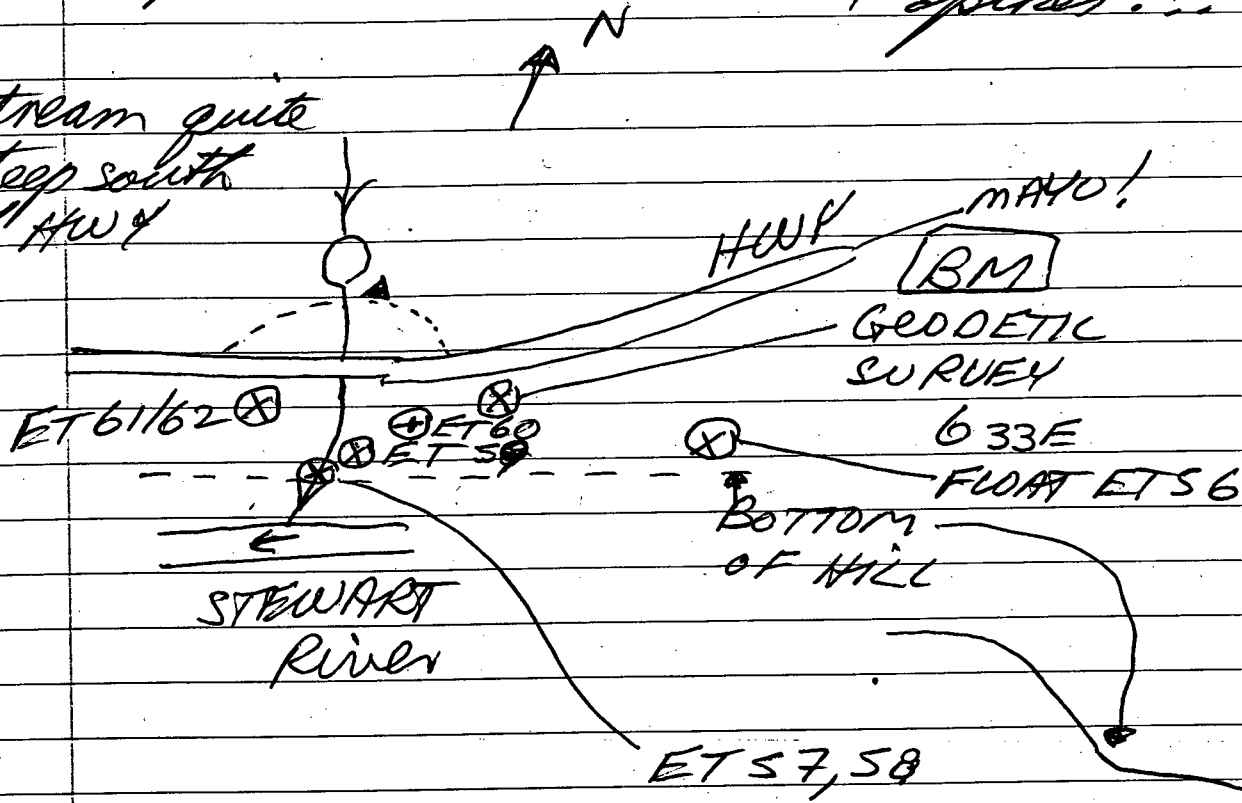 spikes...
N
tream quite
teep south
HWY
HWY
MAYO!
BM
GEODETIC
SURVEY
633E
ET 61/62
ET60
FLOAT ET56
BOTTOM
OF HILL
STEWART
River
ET57,58